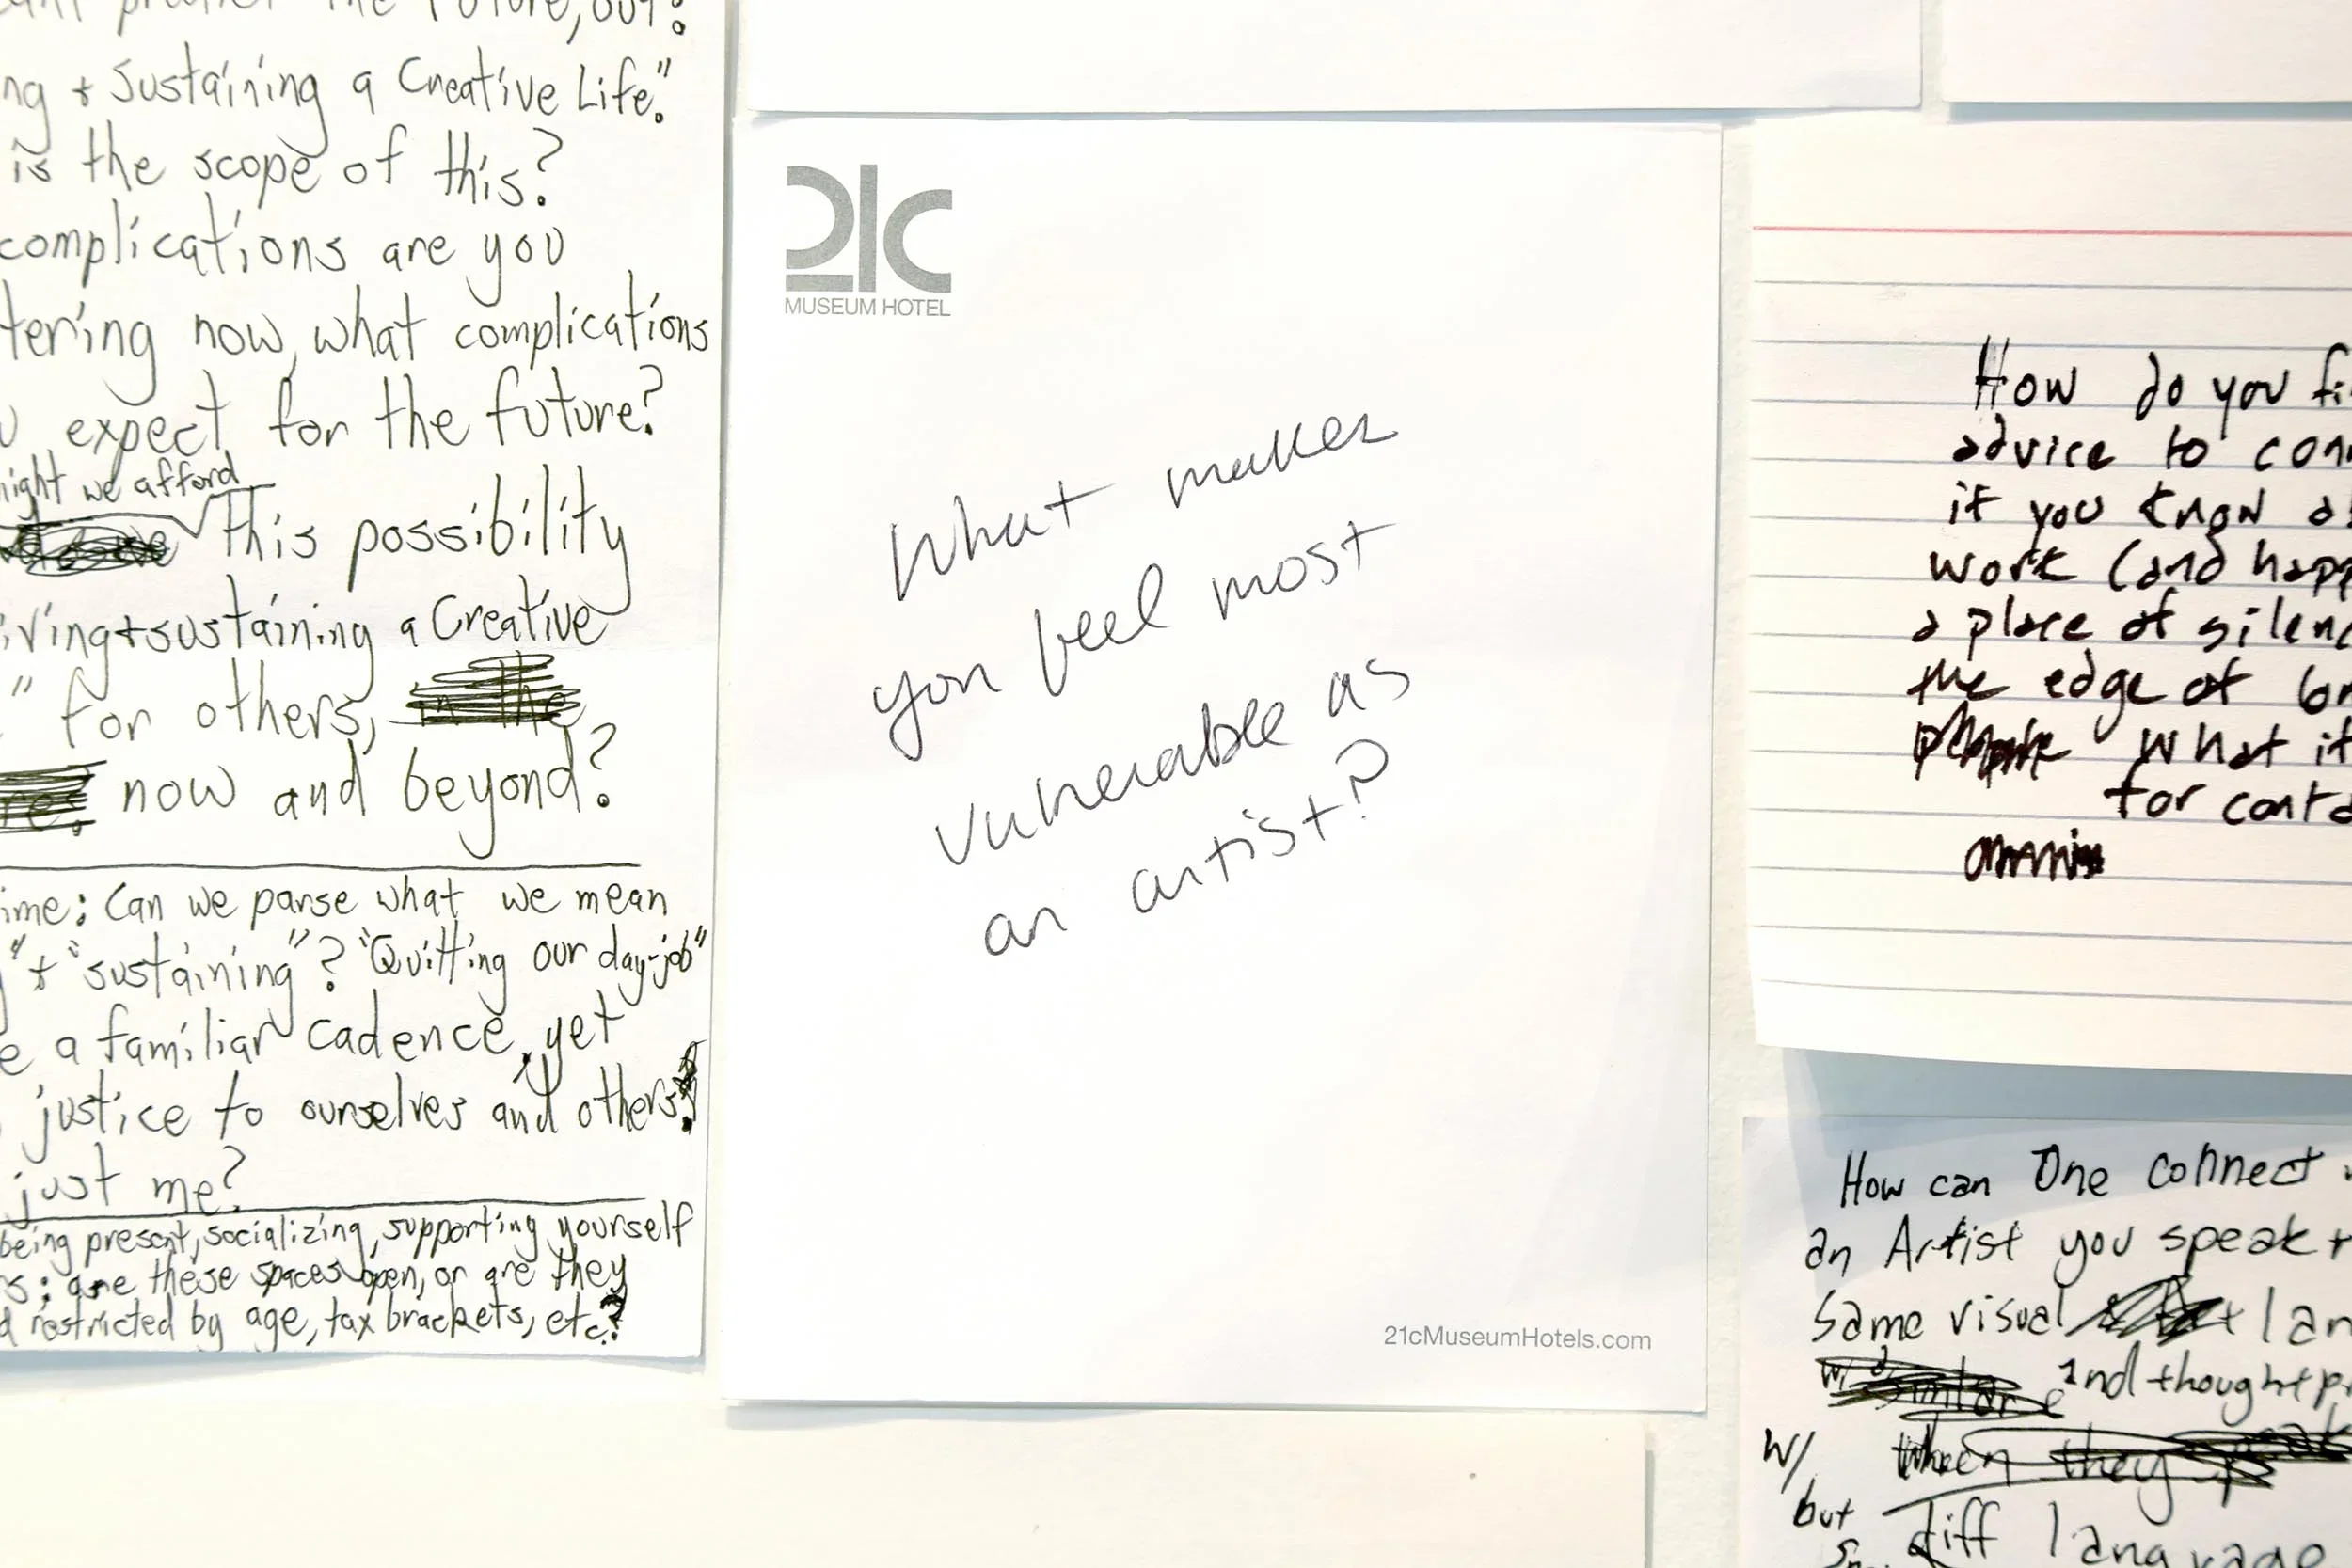 predict the future, but:
ng + Sustaining a Creative Life."
is the scope of this?
complications are you
tering now, what complications
expect for the future?
night we afford
this possibility
iving + sustaining a Creative
" for others, in the
now and beyond?
ime: Can we parse what we mean
" + "sustaining"? "Quitting our day-job"
e a familiar cadence, yet
justice to ourselves and others?
just me?
being present, socializing, supporting yourself
s: are these spaces open, or are they
d restricted by age, tax brackets, etc.?
21c
MUSEUM HOTEL
What makes
you feel most
vulnerable as
an artist?
21cMuseumHotels.com
How do you fi
advice to con
if you know a
work (and happ
a place of silenc
the edge of
what it
for conta
How can One connect
an Artist you speak
Same visual lan
and thought p
w/ When they
but diff language